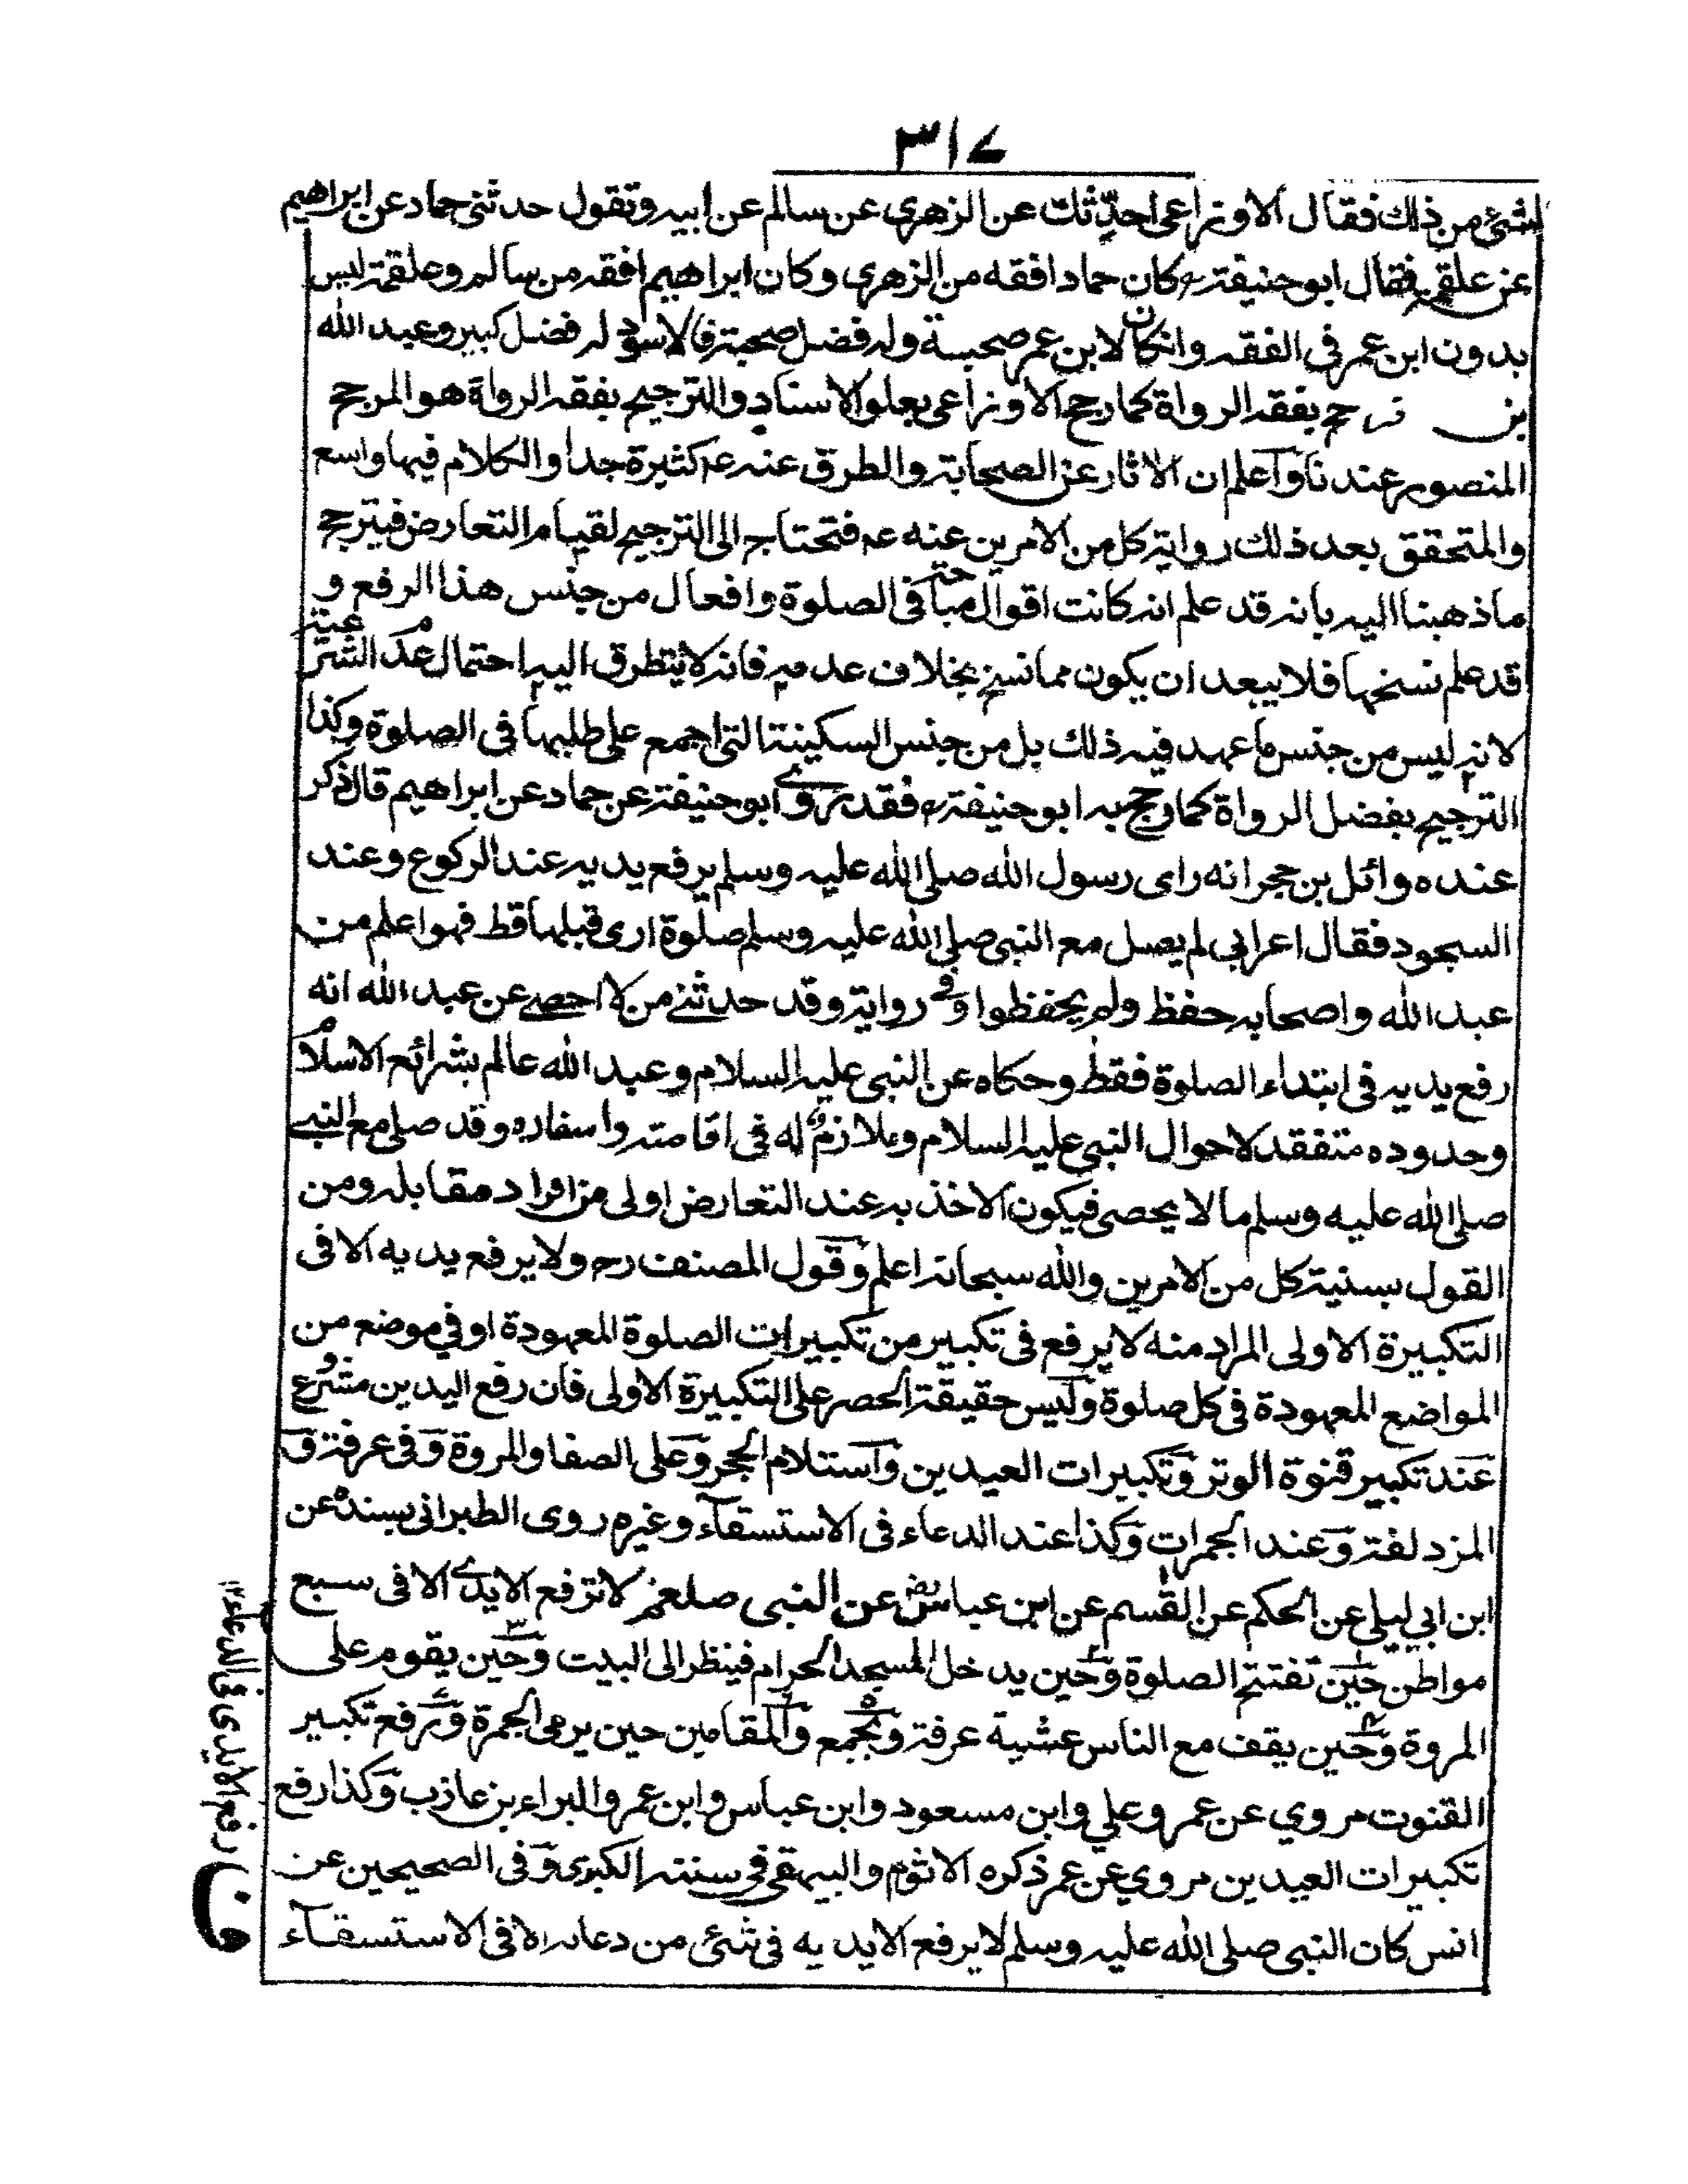 ٣١٧
لشئ من ذلك فقال الاوزاعى احدّثك عن الزهري عن سالم عن ابيه وتقول حدثنى حماد عن ابراهيم
عن علقمة فقال ابو حنيفة رح كان حماد افقه من الزهرى وكان ابراهيم افقه من سالم وعلقمة ليس
بدون ابن عمر فى الفقه وانكان لابن عمر صحبة وله فضل صحبة فالاسود له فضل كبير وعبد الله
بن رجح بفقه الرواة كما رجح الاوزاعى بعلو الاسناد والترجيح بفقه الرواة هو المرجح
المنصور عندنا واعلم ان الاثار عن الصحابة والطرق عنه عم كثيرة جدا والكلام فيها واسع
والمتحقق بعد ذلك رواية كل من الامرين عنه عم فتحتاج الى الترجيح لقيام التعارض فيترجح
ما ذهبنا اليه بانه قد علم انه كانت اقوال مباحة فى الصلوة وافعال من جنس هذا الرفع و
قد علم نسخها فلا يبعد ان يكون مما نسخ بخلاف عدمه فانه لا يتطرق اليه احتمال عدم الشرعية
لانه ليس من جنس ما عهد فيه ذلك بل من جنس السكينة التى اجمع على طلبها فى الصلوة وكذا
الترجيح بفضل الرواة كما رجح به ابو حنيفة رح فقد روى ابو حنيفة عن حماد عن ابراهيم قال ذكر
عنده وائل بن حجر انه راى رسول الله صلى الله عليه وسلم يرفع يديه عند الركوع وعند
السجود فقال اعرابى لم يصل مع النبى صلى الله عليه وسلم صلوة ارى قبلها قط فهو اعلم من
عبد الله واصحابه حفظ ولم يحفظوا وفى رواية وقد حدثنى من لا احصى عن عبد الله انه
رفع يديه فى ابتداء الصلوة فقط وحكاه عن النبى عليه السلام وعبد الله عالم بشرائع الاسلام
وحدوده متفقد لاحوال النبى عليه السلام وملازم له فى اقامته واسفاره وقد صلى مع النبى
صلى الله عليه وسلم ما لا يحصى فيكون الاخذ به عند التعارض اولى من افراد مقابله ومن
القول بسنية كل من الامرين والله سبحانه اعلم وقول المصنف رح ولا يرفع يديه الا فى
التكبيرة الاولى المراد منه لا يرفع فى تكبير من تكبيرات الصلوة المعهودة او في موضع من
المواضع المعهودة فى كل صلوة وليس حقيقة الحصر على التكبيرة الاولى فان رفع اليدين مشروع
عند تكبير قنوة الوتر وتكبيرات العيدين واستلام الحجر وعلى الصفا والمروة وفى عرفة و
المزدلفة وعند الجمرات وكذا عند الدعاء فى الاستسقاء وغيره روى الطبرانى بسنده عن
ابن ابي ليلي عن الحكم عن القسم عن ابن عباس رض عن النبى صلعم لا ترفع الايدى الا فى سبع
مواطن حين تفتتح الصلوة وحين يدخل المسجد الحرام فينظر الى البيت وحين يقوم على
المروة وحين يقف مع الناس عشية عرفة وبجمع والمقامين حين يرمى الجمرة ورفع تكبير
القنوت مروي عن عمر وعلي وابن مسعود وابن عباس وابن عمر والبراء بن عازب وكذا رفع
تكبيرات العيدين مروي عن عمر ذكره الاثرم والبيهقى فى سننه الكبرى وفى الصحيحين عن
انس كان النبى صلى الله عليه وسلم لا يرفع الايد يه فى شئ من دعائه الا فى الاستسقاء
ف رفع الايدى فى الدعاء ١٢